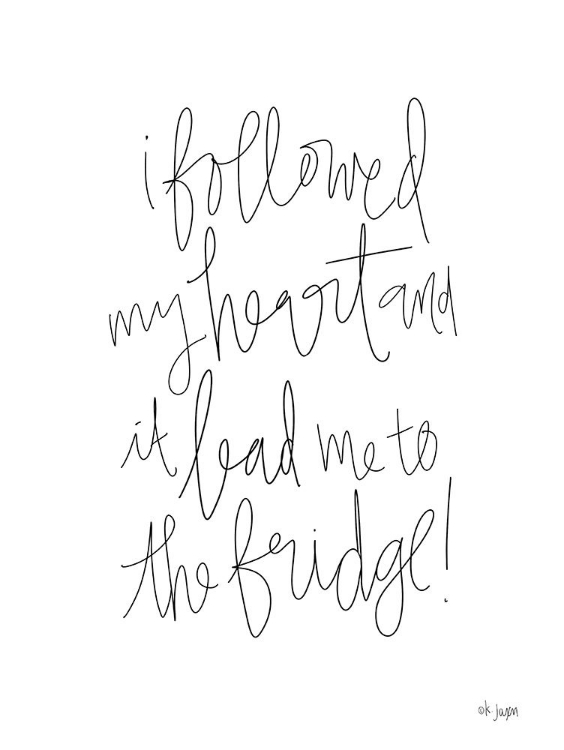 i followed
my heart and
it lead me to
the fridge!
©k. jaxon